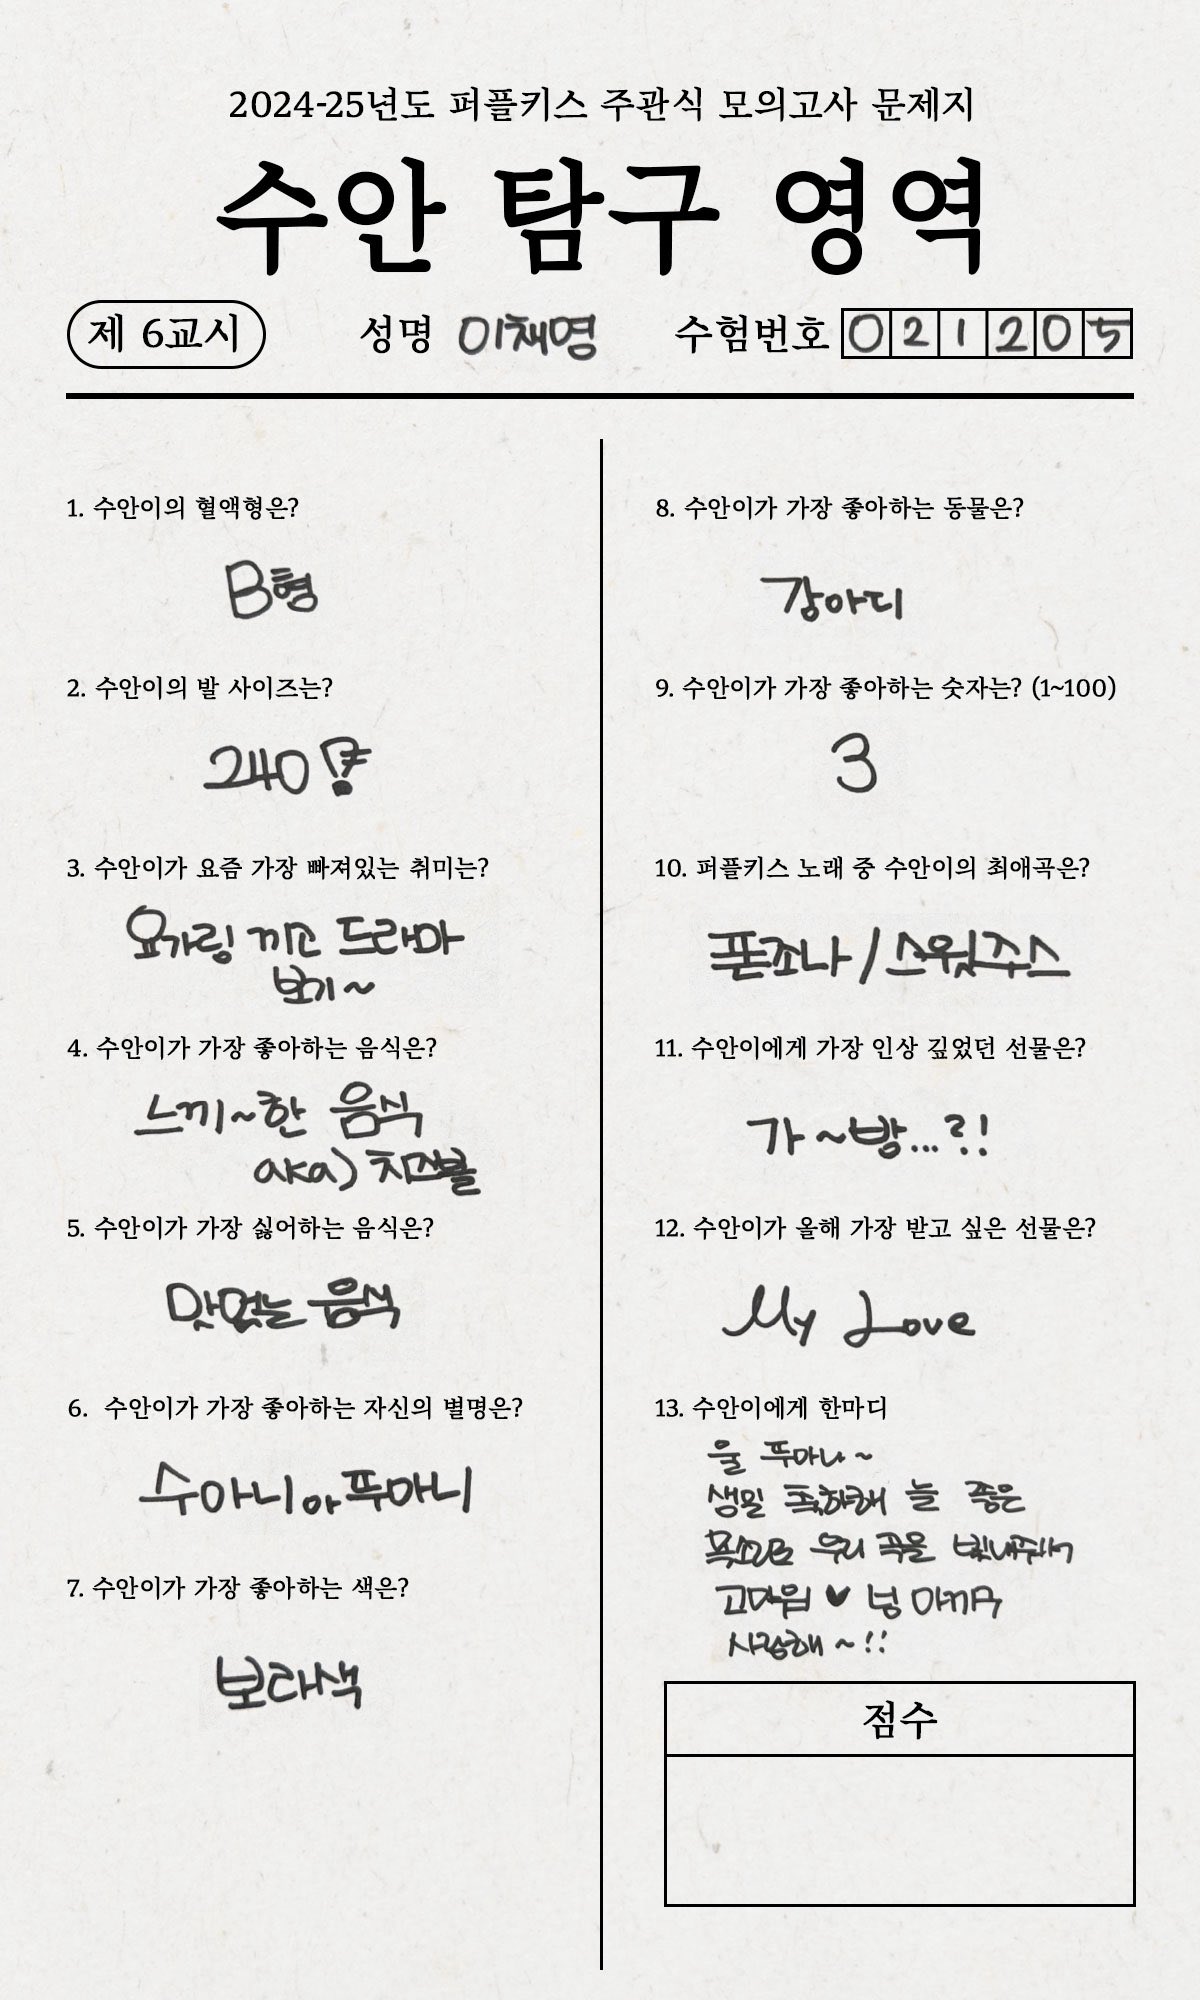 2024-25년도 퍼플키스 주관식 모의고사 문제지
수안 탐구 영역
제 6교시
성명 이채영
수험번호 021205
1. 수안이의 혈액형은?
B형
2. 수안이의 발 사이즈는?
240
3. 수안이가 요즘 가장 빠져있는 취미는?
요가링 끼고 드라마
보기~
4. 수안이가 가장 좋아하는 음식은?
느끼~한 음식
aka) 치즈볼
5. 수안이가 가장 싫어하는 음식은?
맛없는 음식
6. 수안이가 가장 좋아하는 자신의 별명은?
수아니 아 뚜마니
7. 수안이가 가장 좋아하는 색은?
보라색
8. 수안이가 가장 좋아하는 동물은?
강아디
9. 수안이가 가장 좋아하는 숫자는? (1~100)
3
10. 퍼플키스 노래 중 수안이의 최애곡은?
폰조나 / 스윗쥬스
11. 수안이에게 가장 인상 깊었던 선물은?
가~방...?!
12. 수안이가 올해 가장 받고 싶은 선물은?
My Love
13. 수안이에게 한마디
울 뚜마나~
생일 축하해 늘 좋은
목소리로 우리 곡을 빛내줘서
고마워 ♥ 넝 마끼무
사랑해~!!
점수